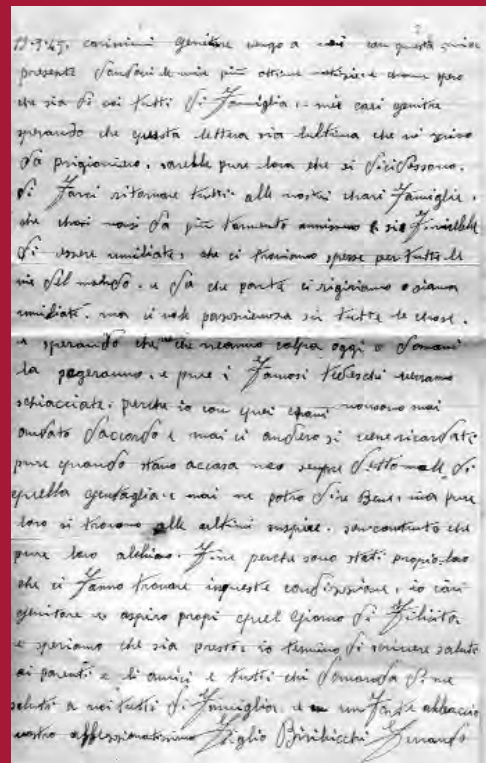 19-3-45. carissimi genitore vengo a voi con questa mia
presente dandovi le mie più ottime notiziere chome spero
che sia di voi tutti di Famiglia, miei cari genitre
sperando che questa lettera sia lultima che vi scrivo
da prigioniero. sarebbe pure lora che si decidessono.
di Farci ritornare tutti alle nostri chari Famiglie,
che chosi noi da più tormento
di essere umiliate, che ci troviamo spersse per tutte le
vie del mondo. e da che parte ci rigiriamo o siamo
umiliate. ma ci vole passienzza su tutte le chose.
e sperando che che neanno colpa oggi o domani
la pageranno. e pure i Famosi tedeschi verrano
schiacciate. perche io con quei chani nonsono mai
andato d'accordo e mai ci andero si vene ricordate
pure quando stavo accasa neo sempre detto male di
quella gentaglia e mai ne potro dire Bene. ma pure
loro si trovono alle ultimi suspire. soncontento che
pure loro abbiano. Fine perche sono stati propio loro
che ci Fanno trovare inqueste condissione, io cari
genitore aspiro propi quel Giorno di Felicita
e speriamo che sia presto. io termino di scrivere saluto
ai parenti e li amici e tutti chi domanda di me
saluti a voi tutti di Famiglia. e un Forte abbraccio
vostro affessionatissimo Figlio Biribicchi Fernando